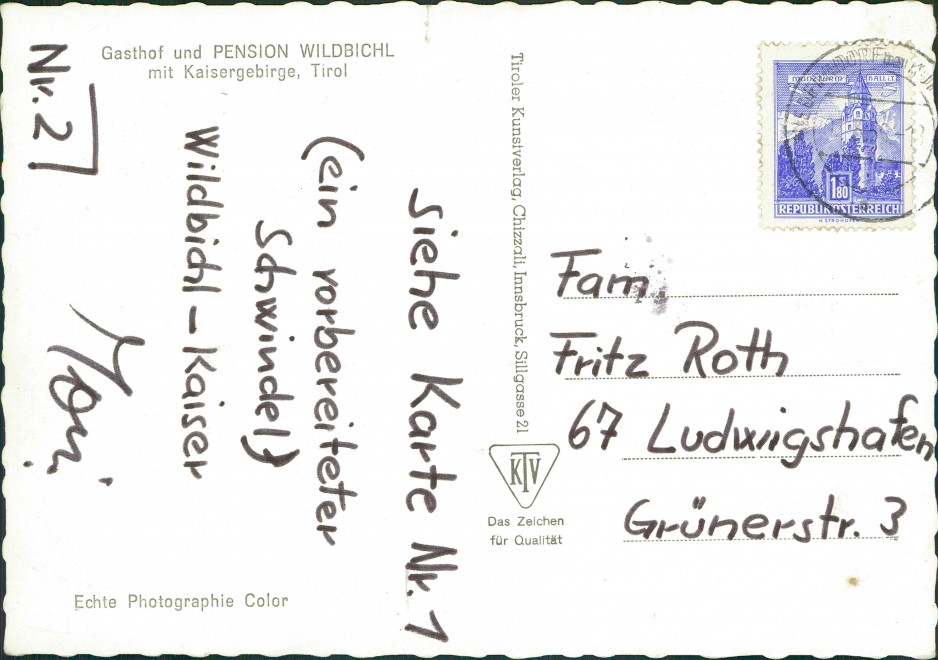 Gasthof und PENSION WILDBICHL
mit Kaisergebirge, Tirol
Nr. 2
siehe Karte Nr. 1
(ein vorbereiteter
Schwindel)
Wildbichl – Kaiser
Echte Photographie Color
Tiroler Kunstverlag, Chizzali, Innsbruck, Sillgasse 21
KTV
Das Zeichen
für Qualität
MÜNZTURM HALL i.T.
1.80
S
REPUBLIK ÖSTERREICH
Fam.
Fritz Roth
67 Ludwigshafen
Grünerstr. 3